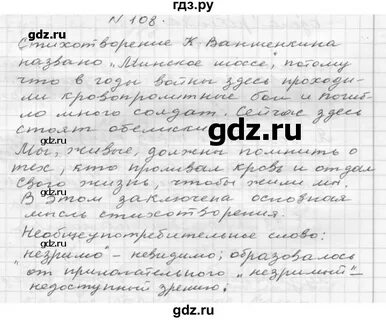 N 108.
Стихотворение К. Ваншенкина
названо „Минское шоссе", потому
что в годы войны здесь проходи-
ли кровопролитные бои и погиб-
ло много солдат. Сейчас здесь
стоят обелиски
gdz.ru
Мы, живые, должны помнить о
тех, кто проливал кровь и отдал
свою жизнь, чтобы жили мы.
В этом заключена основная
мысль стихотворения.
Необщеупотребительное слово:
„незримо" - невидимо; образовалось
от прилагательного „незримый" -
недоступный зрению.
gdz.ru
gdz.ru